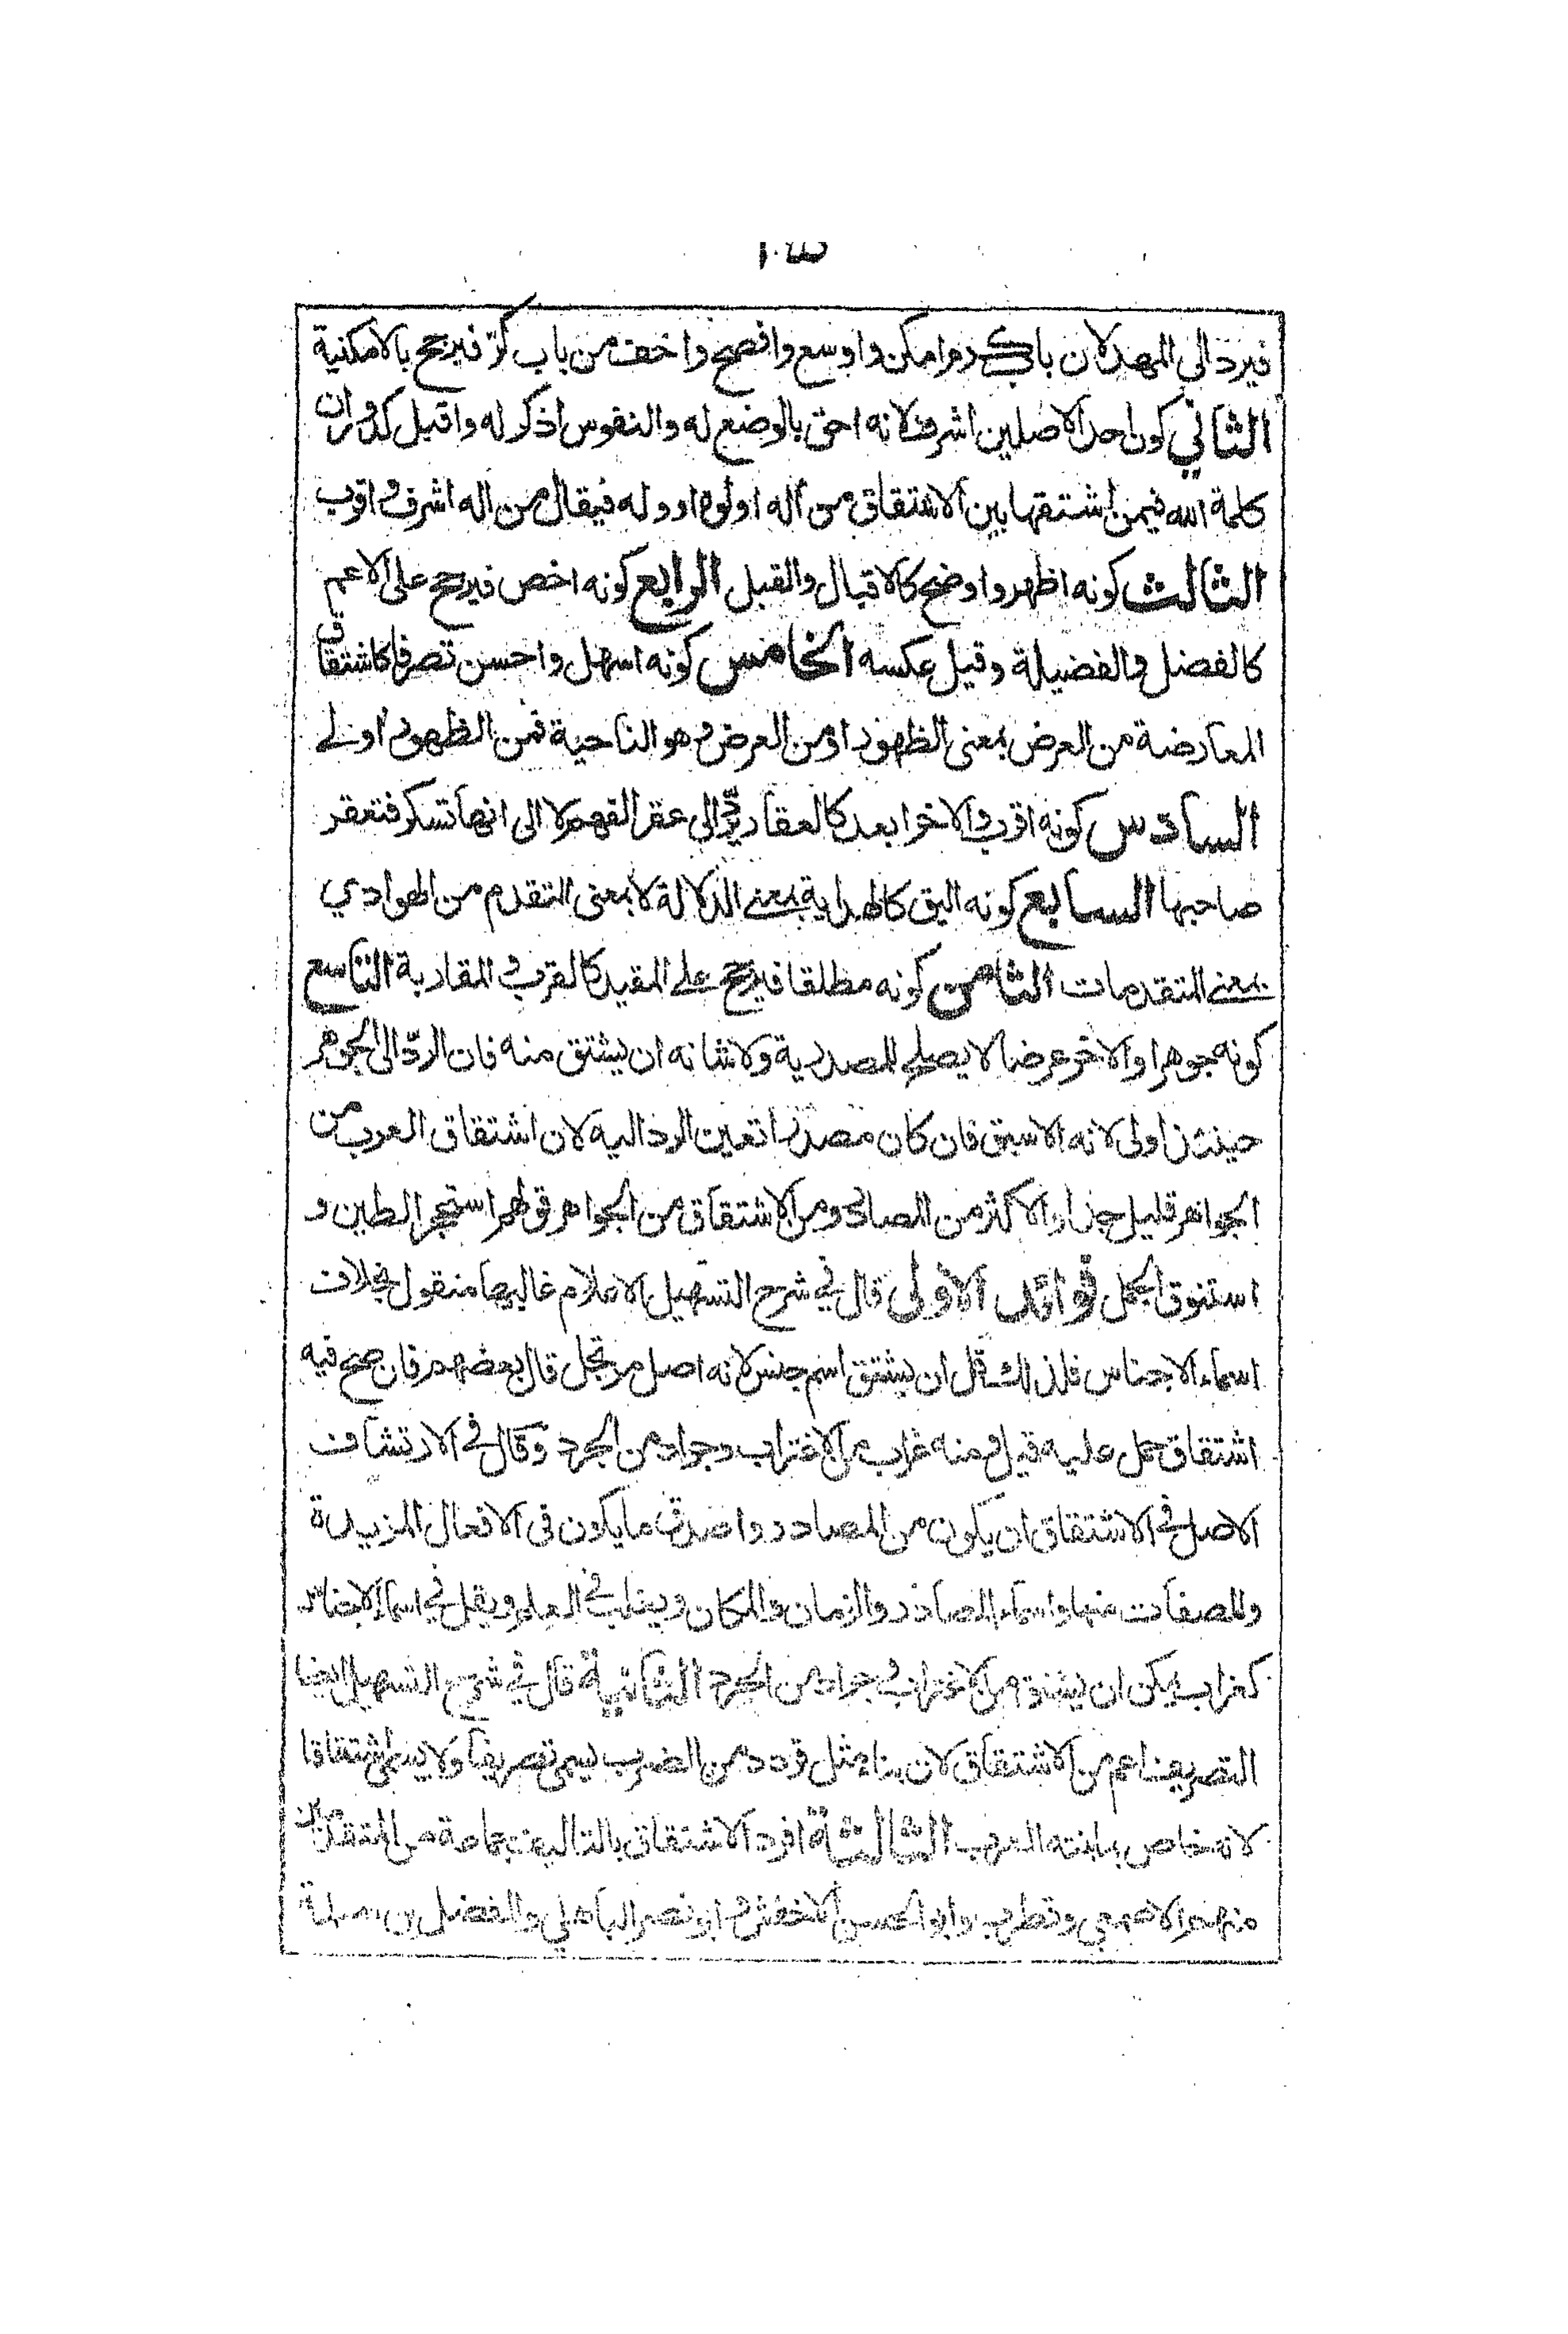 فيرد الى المهد لان باب كرم امكن واوسع وافصح واخف من باب كرّ فيرجح بالامكنية
الثاني كون احد الاصلين اشرف لانه احق بالوضع له والنفوس اذكر له واقبل كدوران
كلمة الله فيمن اشتقها بين الاشتقاق من اله او لوه او وله فيقال من اله اشرف واقرب
الثالث كونه اظهر واوضح كالاقبال والقبل الرابع كونه اخص فيرجح على الاعم
كالفضل والفضيلة وقيل عكسه الخامس كونه اسهل واحسن تصرفا كاشتقاق
المعارضة من العرض بمعنى الظهور او من العرض وهو الناحية فمن الظهور اولى
السادس كونه اقرب والاخر ابعد كالعقار يردّ الى عقر الفهم لا الى انها تسكر فتعقر
صاحبها السابع كونه اليق كالهداية بمعنى الدلالة لا بمعنى التقدم من الهوادي
بمعنى المتقدمات الثامن كونه مطلقا فيرجح على المقيد كالقرب والمقاربة التاسع
كونه جوهرا والاخر عرضا لا يصلح للمصدرية ولا شانه ان يشتق منه فان الردّ الى الجوهر
حينئذ اولى لانه الاسبق فان كان مصدرا تعين الرد اليه لان اشتقاق العرب من
الجواهر قليل جدا والاكثر من المصادر ومن الاشتقاق من الجواهر قولهم استحجر الطين و
استنوق الجمل فوائد الاولى قال في شرح التسهيل الاعلام غالبها منقول بخلاف
اسماء الاجناس فلذلك قل ان يشتق اسم جنس لانه اصل مرتجل قال بعضهم فان صح فيه
اشتقاق حمل عليه قيل ومنه غراب من الاغتراب وجراد من الجرد وقال في الارتشاف
الاصل في الاشتقاق ان يكون من المصادر واصدق ما يكون في الافعال المزيدة
والصفات منها واسماء المصادر والزمان والمكان ويغلب في العلم ويقل في اسماء الاجناس
كغراب يمكن ان يشتق من الاغتراب وجراد من الجرد الثانية قال في شرح التسهيل ايضا
التصريف اعم من الاشتقاق لان بناء مثل قردد من الضرب يسمى تصريفا ولا يسمى اشتقاقا
لانه خاص بما بنته العرب الثالثة افرد الاشتقاق بالتاليف جماعة من المتقدمين
منهم الاصمعي وقطرب وابو الحسن الاخفش وابو نصر الباهلي والمفضل بن سلمة